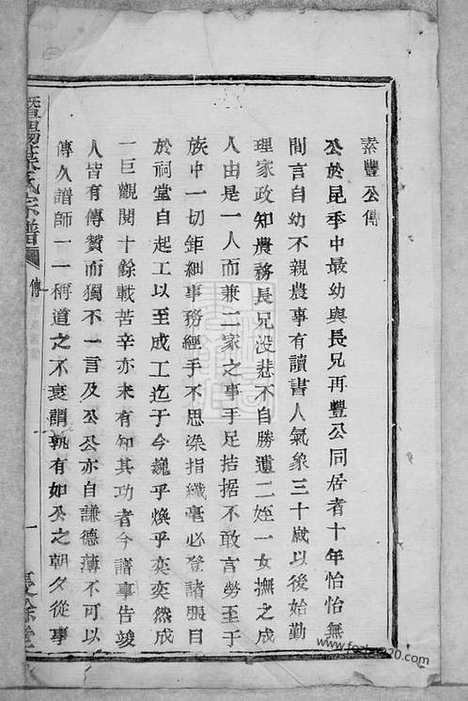 素豐公傳
公於昆季中最幼與長兄再豐公同居者十年怡怡無
間言自幼不親農事有讀書人氣象三十歲以後始勤
理家政知農務長兄没悲不自勝遺二姪一女撫之成
人由是一人而兼二家之事手足拮据不敢言勞至于
族中一切鉅細事務經手不思染指纖毫必登諸賬目
於祠堂自起工以至成工迄于今巍乎煥乎奕奕然成
一巨觀閱十餘載苦辛亦未有知其功者今譜事告竣
人皆有傳贊而獨不一言及公公亦自謙德薄不可以
傳久譜師一一稱道之不衰謂孰有如公之朝夕從事
氏宗譜
傳
一
餘堂